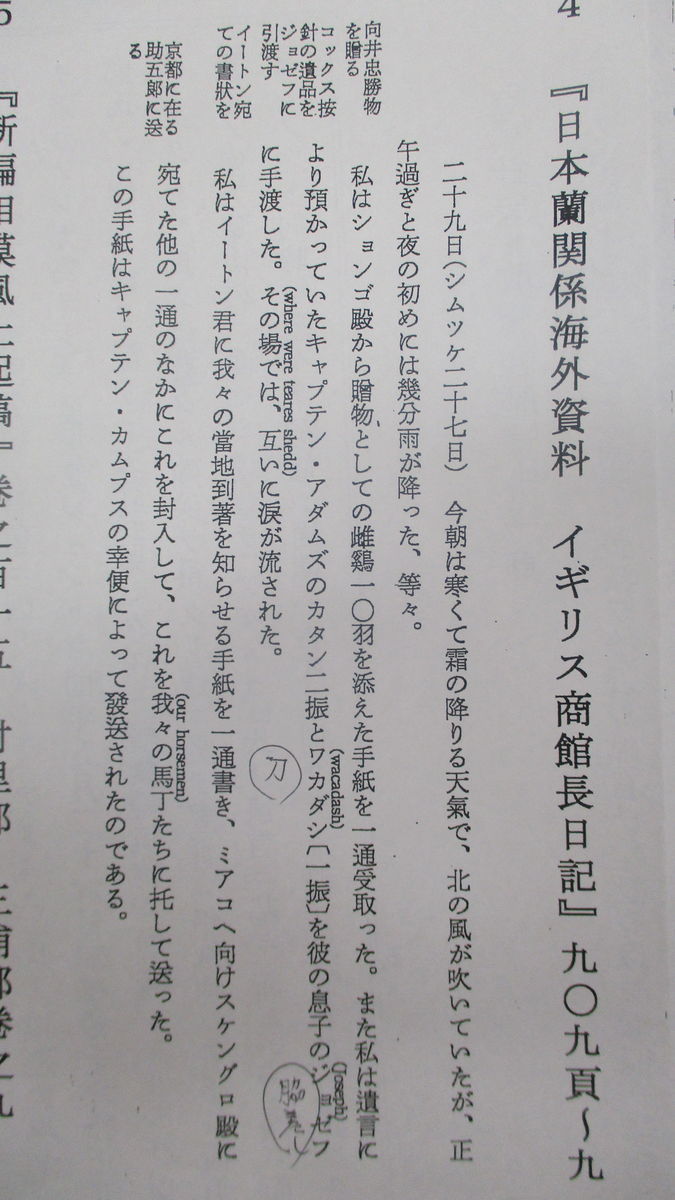 4 『日本蘭関係海外資料 イギリス商館長日記』九〇九頁～九
二十九日(シムツケ二十七日) 今朝は寒くて霜の降りる天氣で、北の風が吹いていたが、正
午過ぎと夜の初めには幾分雨が降った、等々。
向井忠勝物
を贈る
私はションゴ殿から贈物としての雌鷄一〇羽を添えた手紙を一通受取った。また私は遺言に
コックス按
針の遺品を
ジョゼフに
引渡す
(wacadash)
(Joseph)
より預かっていたキャプテン・アダムズのカタン二振とワカダシ〔一振〕を彼の息子のジョゼフ
脇差し
(where were teares shedd)
に手渡した。その場では、互いに涙が流された。
刀
イートン宛
ての書狀を
私はイートン君に我々の當地到著を知らせる手紙を一通書き、ミアコへ向けスケングロ殿に
京都に在る
助五郎に送
る
(our horsemen)
宛てた他の一通のなかにこれを封入して、これを我々の馬丁たちに托して送った。
この手紙はキャプテン・カムプスの幸便によって發送されたのである。
5 『新編相模風土記稿』巻之百十五 村里部 三浦郡巻之九